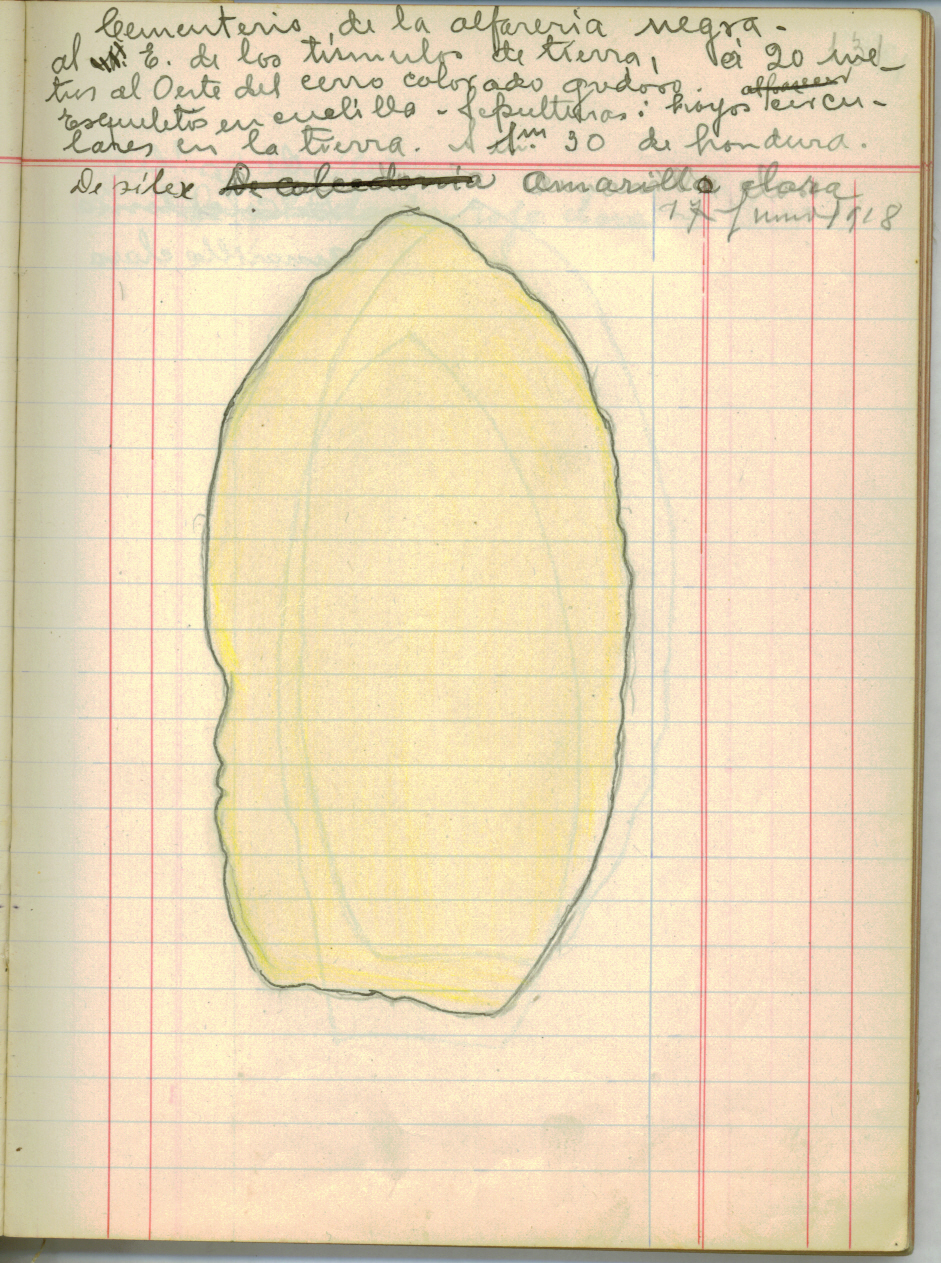 Cementerio, de la alfareria negra.
al E. de los túmulos de tierra, á 20 me-
tros al Oeste del cerro colorado gredoso.
Esqueletos en cuclilla - Sepulturas: hoyos circu-
lares en la tierra. A 1m. 30 de hondura.
De silex De calcedonia amarilla clara
17 - Junio 1918